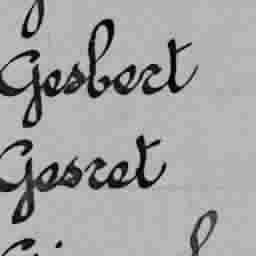 Gesbert
Gesret